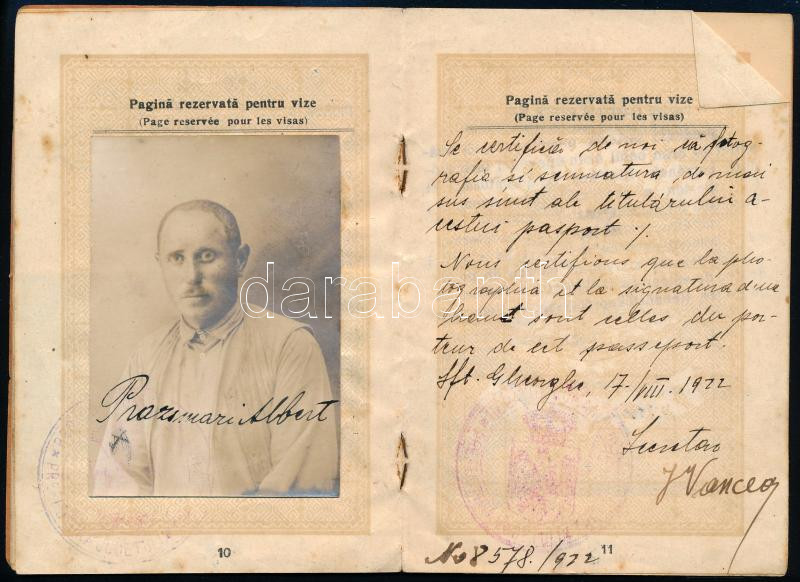 Pagină rezervată pentru vize
(Page reservée pour les visas)
Prazsmari Albert
10
Pagină rezervată pentru vize
(Page reservée pour les visas)
Se certifică de noi că fotog-
rafia si semnatura de mai
sus sunt ale titulárului a-
cestui pasport ./.
Nous certifions que la pho-
tographia et la signatura d'en
haut sont celles du por-
teur de cet passeport.
Sft. Gheorghe, 17/VIII. 1922
Secretar
Vancea
No 8578./922
11
darabanth